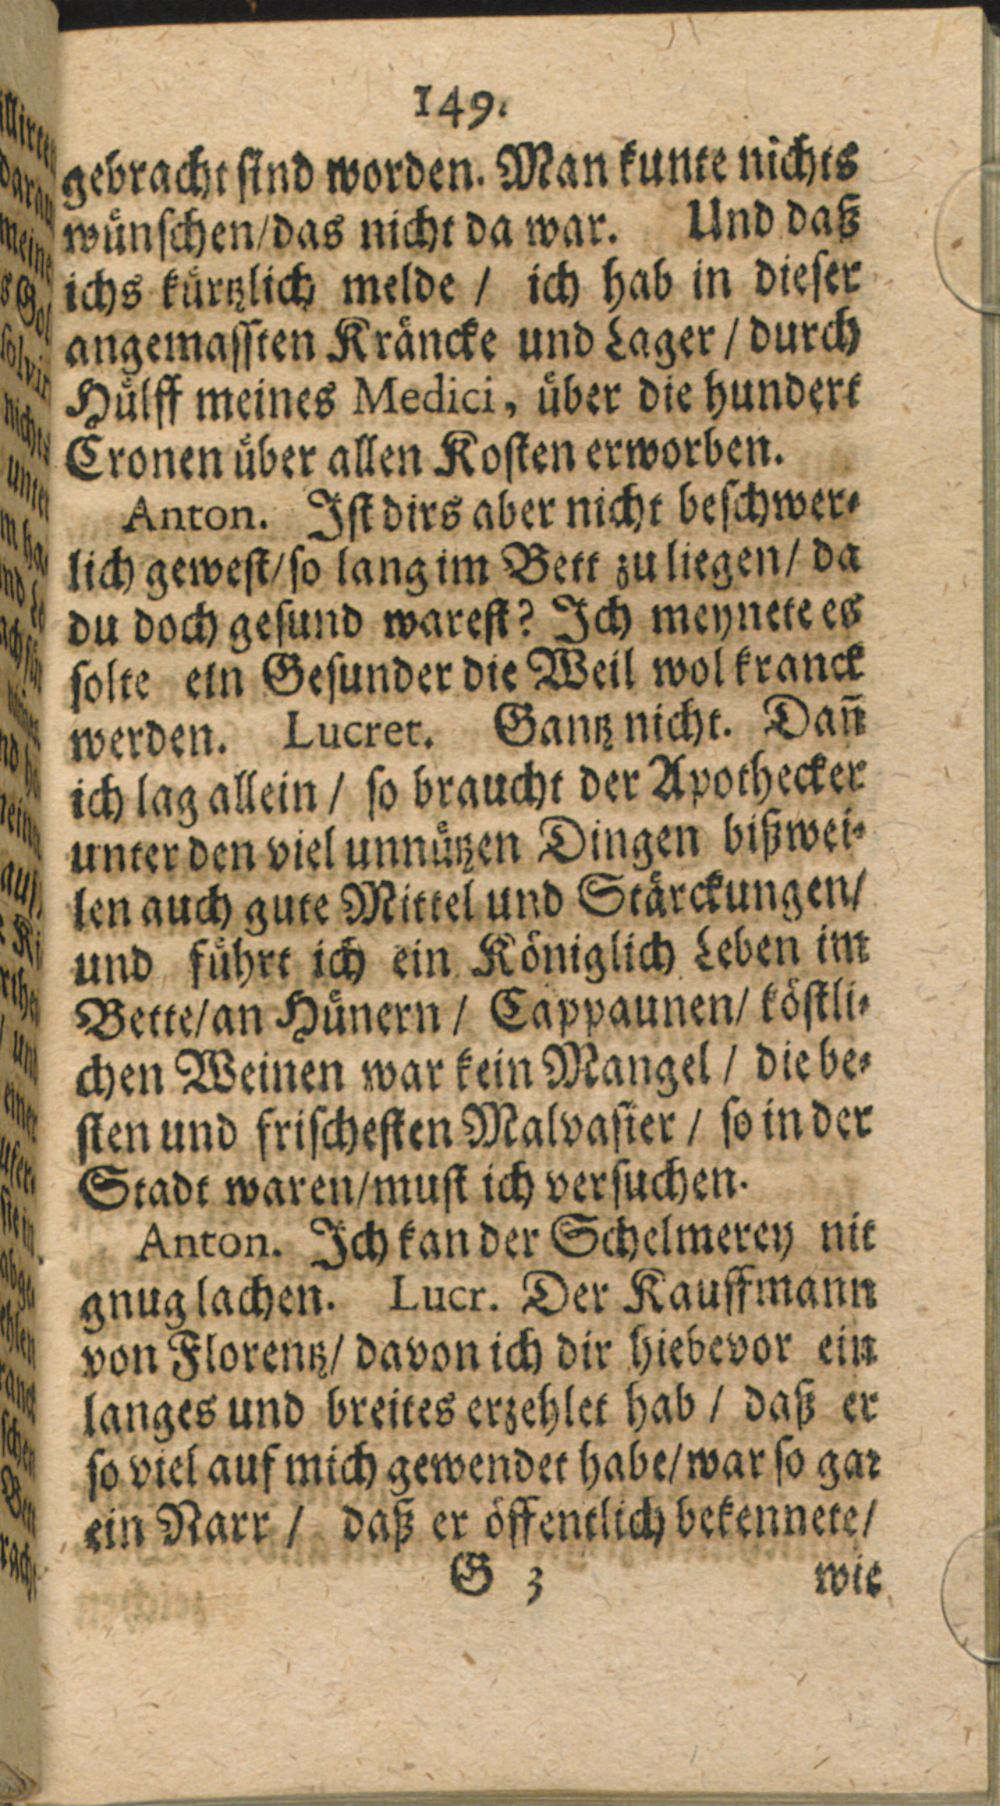 149.
gebracht sind worden. Man kunte nichts
wünschen/das nicht da war. Und daß
ichs kürtzlich melde / ich hab in dieser
angemassten Kräncke und Lager / durch
Hülff meines Medici, über die hundert
Cronen über allen Kosten erworben.
Anton. Ist dirs aber nicht beschwer-
lich gewest/so lang im Bett zu liegen/ da
du doch gesund warest? Ich meynete es
solte ein Gesunder die Weil wol kranck
werden. Lucret. Gantz nicht. Dañ
ich lag allein / so braucht der Apothecker
unter den viel unnützen Dingen bißwei-
len auch gute Mittel und Stärckungen/
und führt ich ein Königlich Leben im
Bette/an Hünern / Cappaunen/ köstli-
chen Weinen war kein Mangel / die be-
sten und frischesten Malvasier / so in der
Stadt waren/must ich versuchen.
Anton. Ich kan der Schelmerey nit
gnug lachen. Lucr. Der Kauffmann
von Florentz/ davon ich dir hiebevor ein
langes und breites erzehlet hab / daß er
so viel auf mich gewendet habe/war so gar
ein Narr / daß er öffentlich bekennete/
G 3 wie